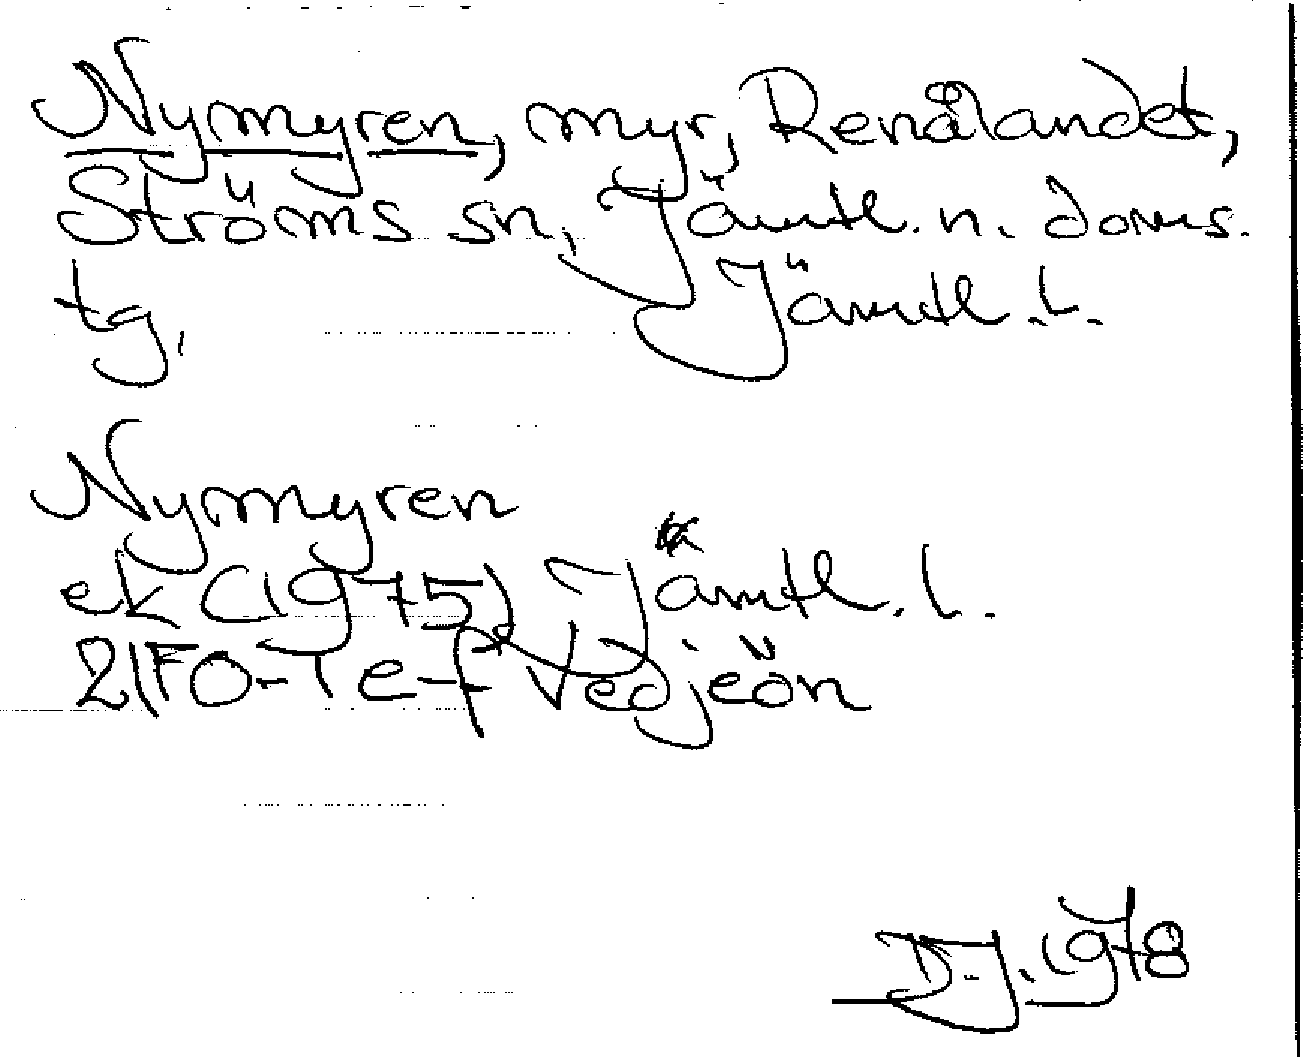 Nymyren, myr, Renålandet,
Ströms sn, Jämtl. n. doms.
tg. Jämtl. l.
Nymyren
ek (1975) Jämtl. l.
21F0-1 e-f Vedjeön
D.J. 1978